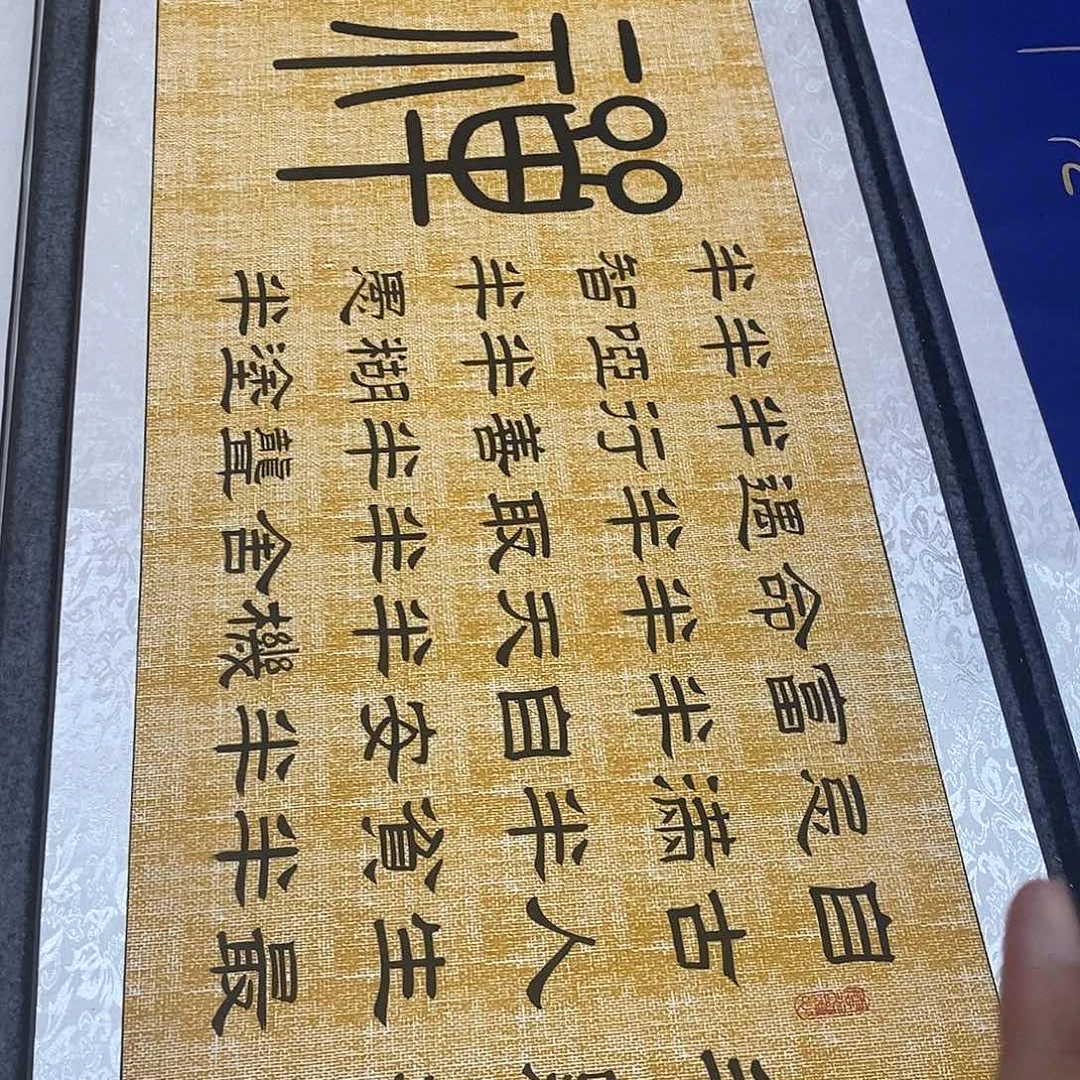 自古人生最
忌滿半貧半
富半自安半
命半天半機
遇半取半舍
半行善半聾
半啞半糊塗
半智半愚半
禪